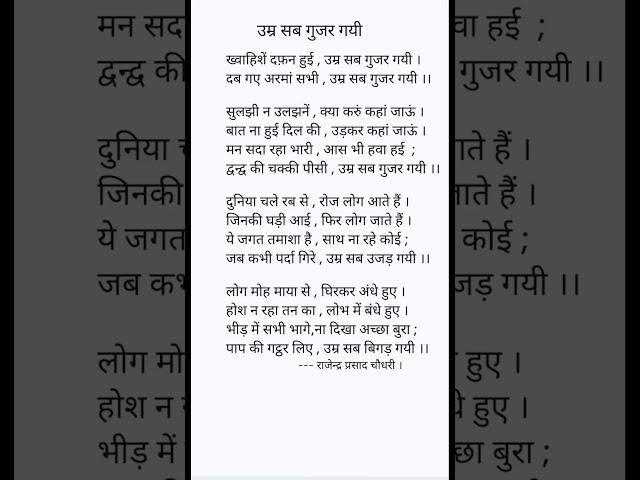 उम्र सब गुजर गयी
ख्वाहिशें दफ़न हुई , उम्र सब गुजर गयी ।
दब गए अरमां सभी , उम्र सब गुजर गयी ।।
सुलझी न उलझनें , क्या करुं कहां जाऊं ।
बात ना हुई दिल की , उड़कर कहां जाऊं ।
मन सदा रहा भारी , आस भी हवा हई  ;
द्वन्द्व की चक्की पीसी , उम्र सब गुजर गयी ।।
दुनिया चले रब से , रोज लोग आते हैं ।
जिनकी घड़ी आई , फिर लोग जाते हैं ।
ये जगत तमाशा है , साथ ना रहे कोई ;
जब कभी पर्दा गिरे , उम्र सब उजड़ गयी ।।
लोग मोह माया से , घिरकर अंधे हुए ।
होश न रहा तन का , लोभ में बंधे हुए ।
भीड़ में सभी भागे,ना दिखा अच्छा बुरा ;
पाप की गट्ठर लिए , उम्र सब बिगड़ गयी ।।
--- राजेन्द्र प्रसाद चौधरी ।